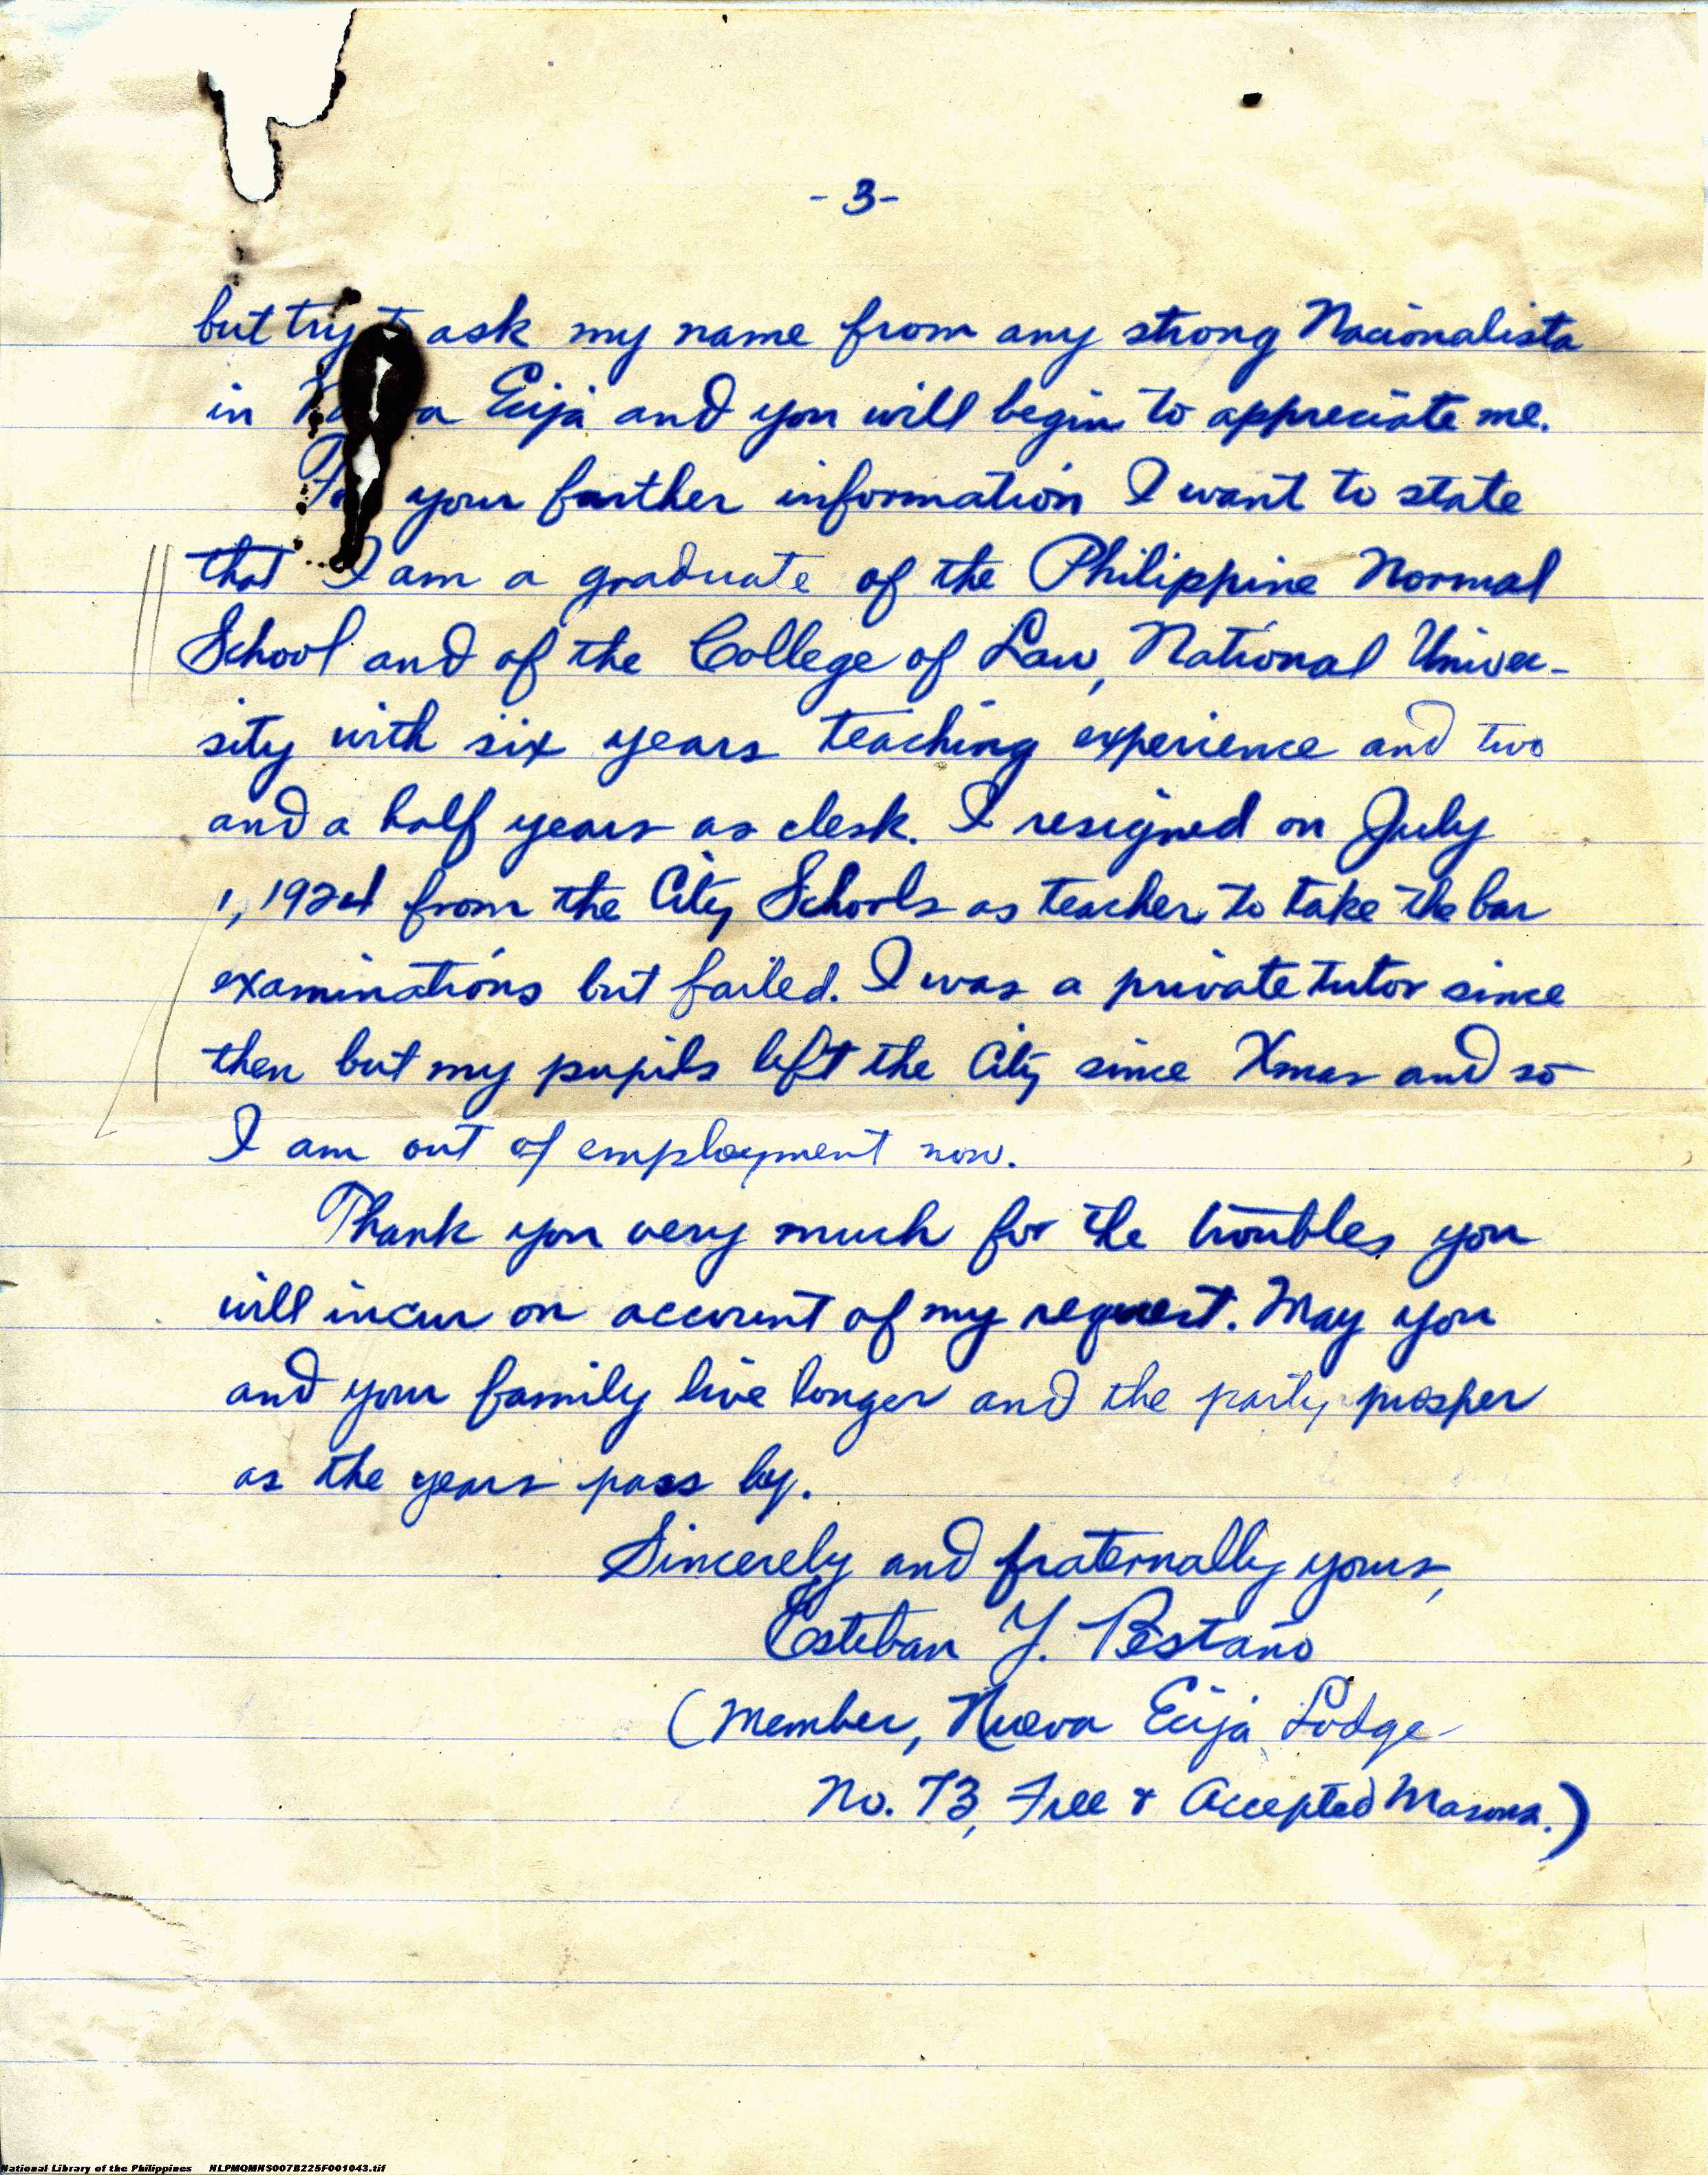 - 3 -
but try to ask my name from any strong Nacionalista
in Nueva Ecija and you will begin to appreciate me.
For your further information I want to state
that I am a graduate of the Philippine Normal
School and of the College of Law, National Univer-
sity with six years teaching experience and two
and a half years as clerk. I resigned on July
1, 1924 from the City Schools as teacher to take the bar
examinations but failed. I was a private tutor since
then but my pupils left the City since Xmas and so
I am out of employment now.
Thank you very much for the troubles you
will incur on account of my request. May you
and your family live longer and the party prosper
as the years pass by.
Sincerely and fraternally yours,
Esteban Y. Bestaño
(Member, Nueva Ecija Lodge
No. 73, Free & Accepted Masons.)
National Library of the Philippines NLPMQMNS007B225F001043.tif